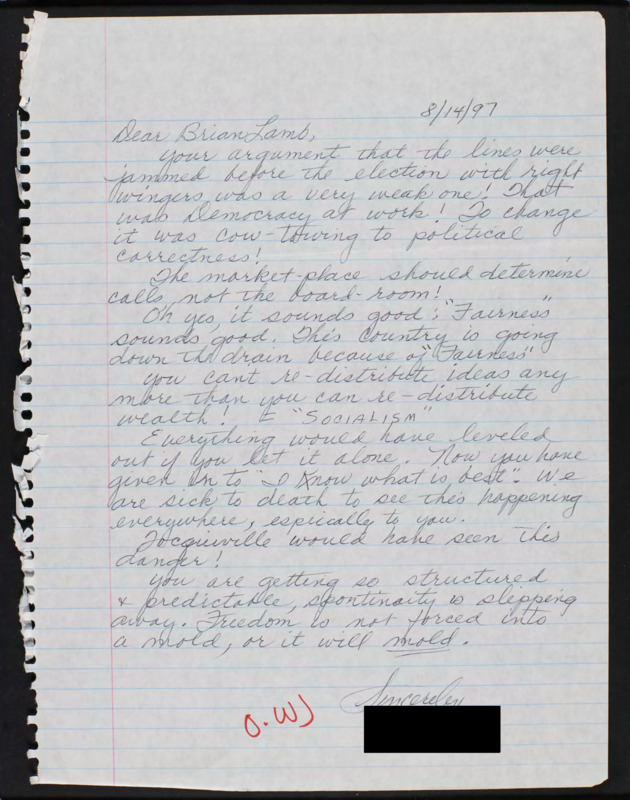 8/14/97
Dear Brian Lamb,
your argument that the lines were
jammed before the election with right
wingers was a very weak one! That
was Democracy at work! To change
it was cow-towing to political
correctness!
The market-place should determine
calls, not the board-room!
Oh yes, it sounds good: "Fairness"
sounds good. This country is going
down the drain because of "Fairness"
you can't re-distribute ideas any
more than you can re-distribute
wealth! "SOCIALISM"
Everything would have leveled
out if you let it alone. Now you have
given in to "I know what is best". We
are sick to death to see this happening
everywhere, espically to you.
Tocquiville would have seen this
danger!
you are getting so structured
& predictable, spontinaity is slipping
away. Freedom is not forced into
a mold, or it will mold.
Sincereley
O.W)